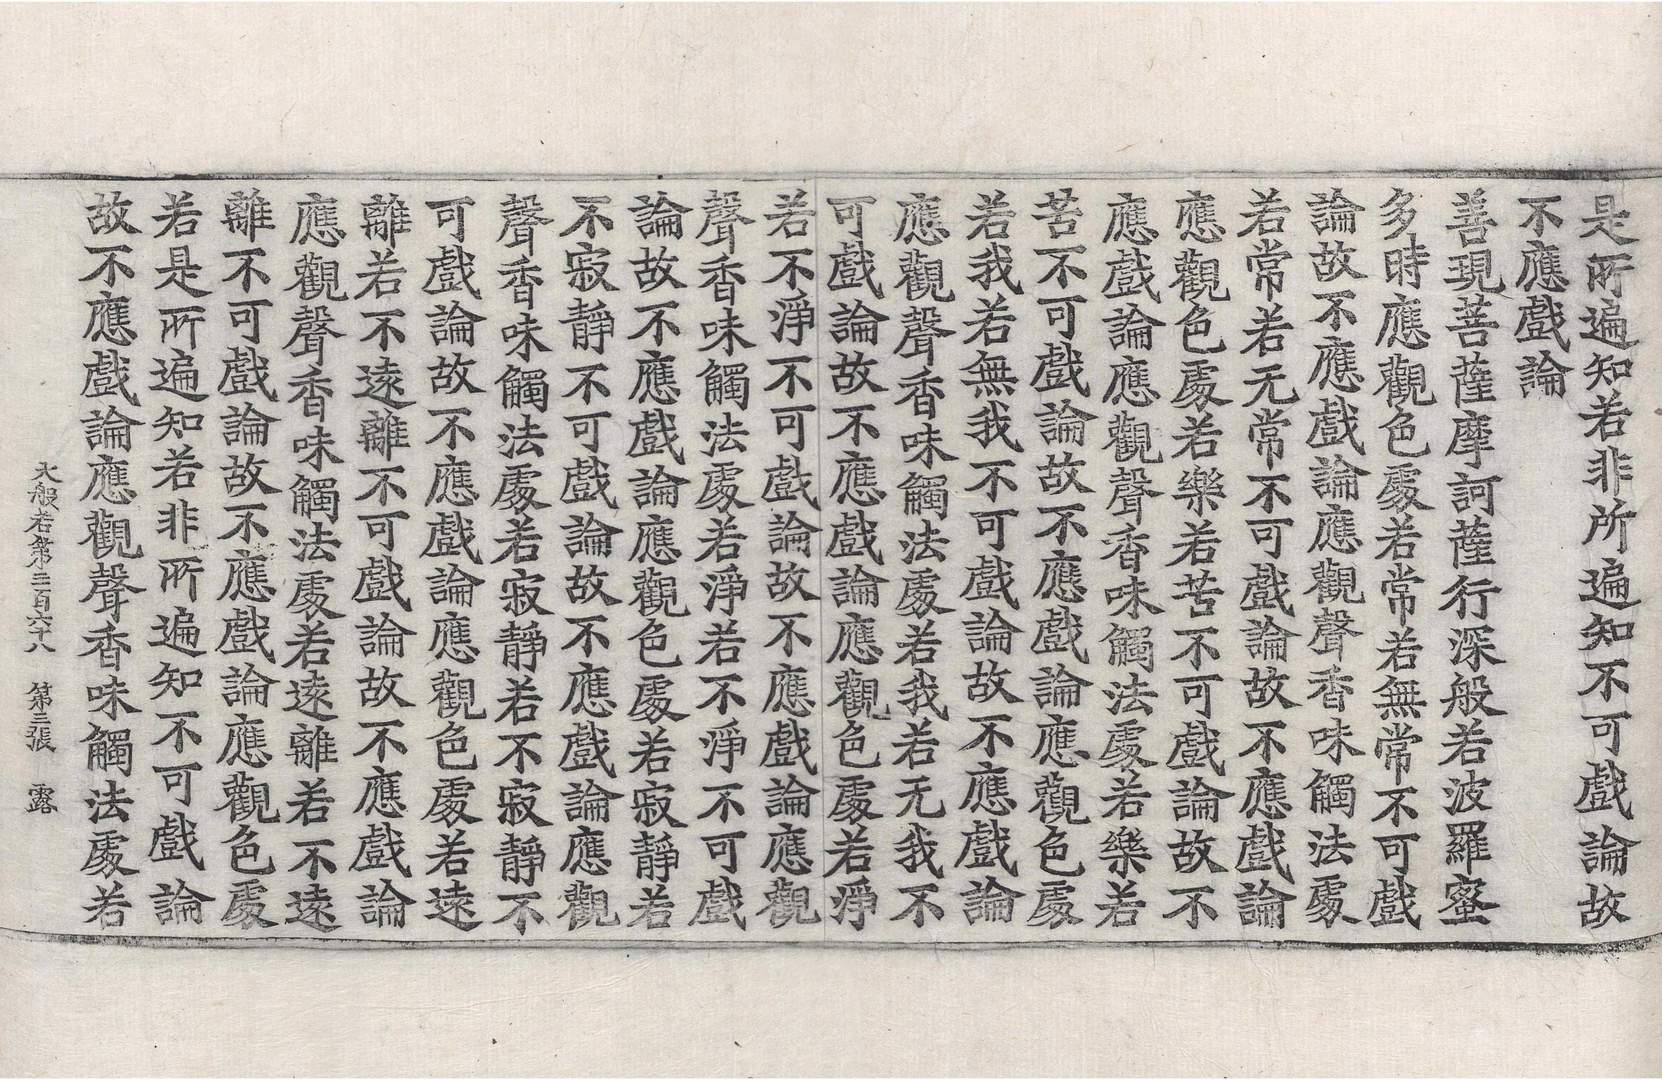 是所遍知若非所遍知不可戲論故
不應戲論
善現菩薩摩訶薩行深般若波羅蜜
多時應觀色處若常若無常不可戲
論故不應戲論應觀聲香味觸法處
若常若无常不可戲論故不應戲論
應觀色處若樂若苦不可戲論故不
應戲論應觀聲香味觸法處若樂若
苦不可戲論故不應戲論應觀色處
若我若無我不可戲論故不應戲論
應觀聲香味觸法處若我若无我不
可戲論故不應戲論應觀色處若淨
若不淨不可戲論故不應戲論應觀
聲香味觸法處若淨若不淨不可戲
論故不應戲論應觀色處若寂靜若
不寂靜不可戲論故不應戲論應觀
聲香味觸法處若寂靜若不寂靜不
可戲論故不應戲論應觀色處若遠
離若不遠離不可戲論故不應戲論
應觀聲香味觸法處若遠離若不遠
離不可戲論故不應戲論應觀色處
若是所遍知若非所遍知不可戲論
故不應戲論應觀聲香味觸法處若
大般若第三百六十八 第三張 露